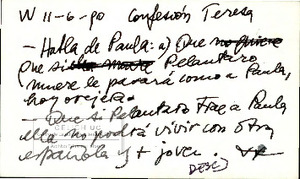 W 11-6-90 Confesión Teresa
- Habla de Paula: a) Que no quiere
que si Pelantaro
muere le pasará como a Paula,
hoy oveja.
- Que si Pelantaro trae a Paula
ella no podrá vivir con otra
española y + joven.
DESC